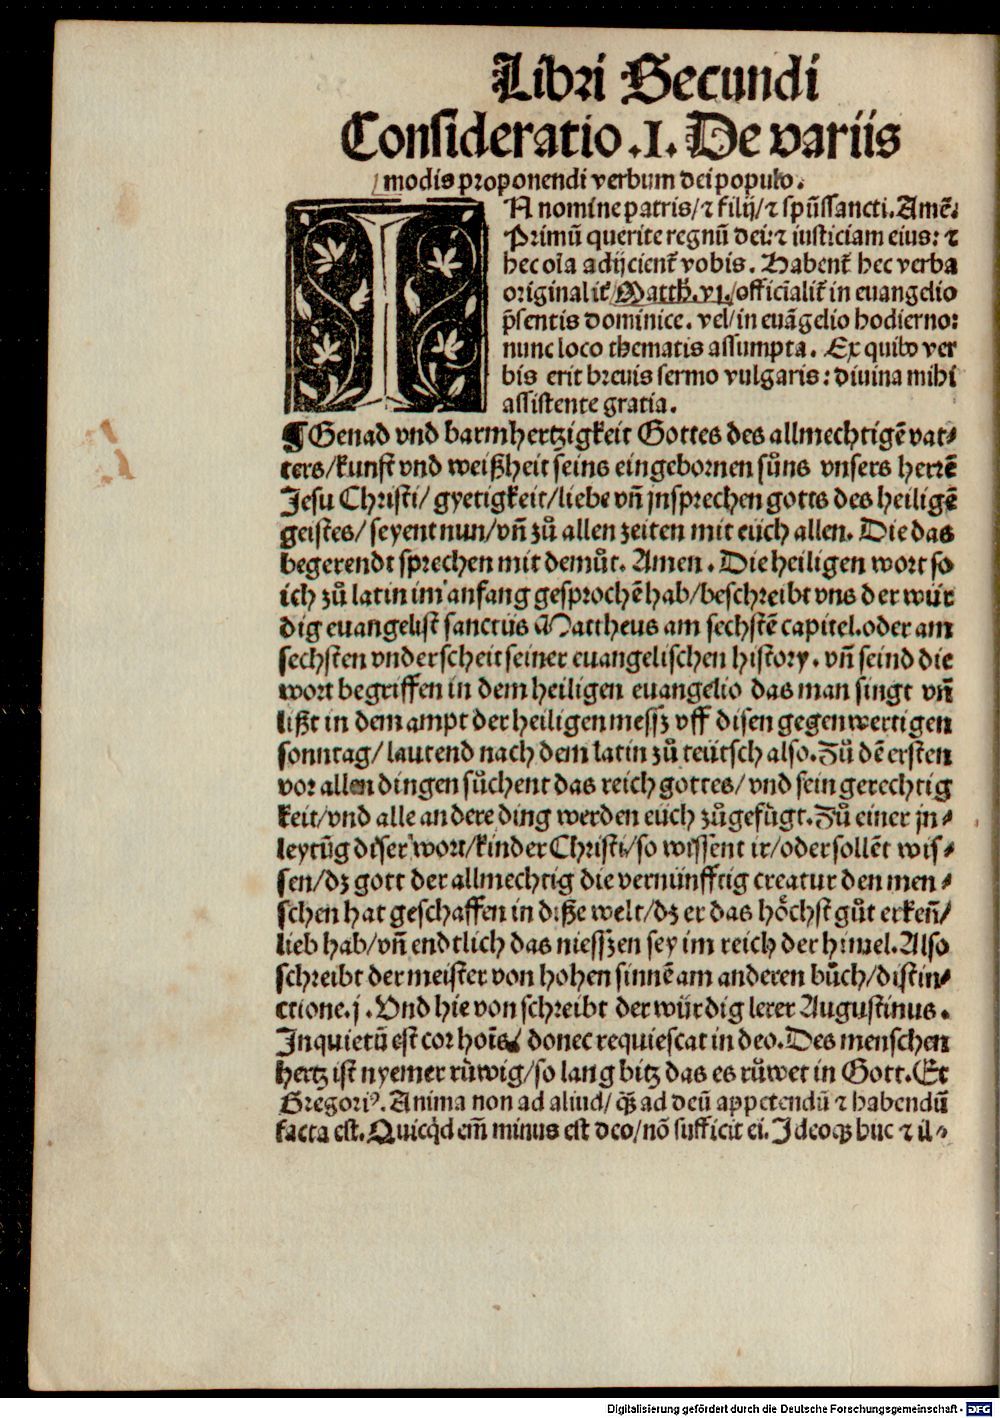 Libri Secundi
Consideratio .I. De variis
modis proponendi verbum dei populo.
IN nomine patris/ ⁊ filij/ ⁊ spūssancti. Amē.
Primū querite regnū dei: ⁊ iusticiam eius: ⁊
hec oīa adijcient᷑ vobis. Habent᷑ hec verba
originalit᷑/ Matth. vj./ officialit᷑ in euangelio
p̄sentis dominice. vel/ in euāgelio hodierno:
nunc loco thematis assumpta. Ex quibꝰ ver
bis erit breuis sermo vulgaris: diuina mihi
assistente gratia.
¶ Genad vnd barmhertzigkeit Gottes des allmechtigē vat⸗
ters/ kunst vnd weißheit seins eingebornen sůns vnsers herrē
Jesu Christi/ gyetigkeit/ liebe vn̄ jnsprechen gotts des heiligē
geistes/ seyent nun/ vn̄ zů allen zeiten mit eüch allen. Die das
begerendt sprechen mit demůt. Amen. Die heiligen wort so
ich zů latin im anfang gesprochē hab/ beschreibt vns der wür
dig euangelist sanctus Mattheus am sechstē capitel. oder am
sechsten vnderscheit seiner euangelischen history. vn̄ seind die
wort begriffen in dem heiligen euangelio das man singt vn̄
lißt in dem ampt der heiligen messz vff disen gegenwertigen
sonntag/ lautend nach dem latin zů teütsch also. Zů dē ersten
vor allen dingen sůchent das reich gottes/ vnd sein gerechtig
keit/ vnd alle andere ding werden eüch zůgefügt. Zů einer jn⸗
leytūg diser wort/ kinder Christi/ so wissent ir/ oder sollēt wis⸗
sen/ dz gott der allmechtig die vernünfftig creatur den men⸗
schen hat geschaffen in diße welt/ dz er das höchst gůt erken̄/
lieb hab/ vn̄ endtlich das niesszen sey im reich der himel. Also
schreibt der meister von hohen sinnē am anderen bůch/ distin⸗
ctione. j. Vnd hie von schreibt der würdig lerer Augustinus.
Inquietū est cor hoīs/ donec requiescat in deo. Des menschen
hertz ist nyemer rüwig/ so lang bitz das es růwet in Gott. Et
Gregoriꝰ. Anima non ad aliud/ qȝ ad deū appetendū ⁊ habendū
facta est. Quicq̇d em̄ minus est deo/ nō sufficit ei. Ideoqȝ huc ⁊ il⸗
Digitalisierung gefördert durch die Deutsche Forschungsgemeinschaft - DFG